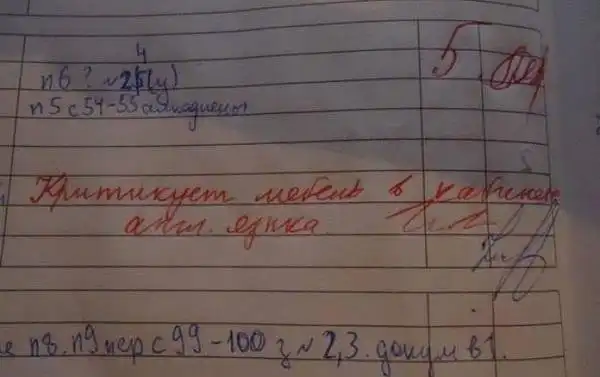 4
п6? №25(у)
п5 с 54-55 5
Критикует мебель в кабинете
англ. языка
п8. п9 пер с 99-100 з №2,3. докум в 1.